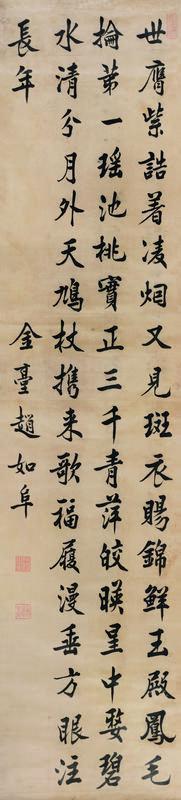 世膺紫誥着凌烟又見斑衣賜錦鮮玉殿鳳毛
掄苐一瑶池桃實正三千青萍皎暎星中婺碧
水清分月外天鳩杖携来歌福履漫垂方眼注
長年 金臺趙如阜